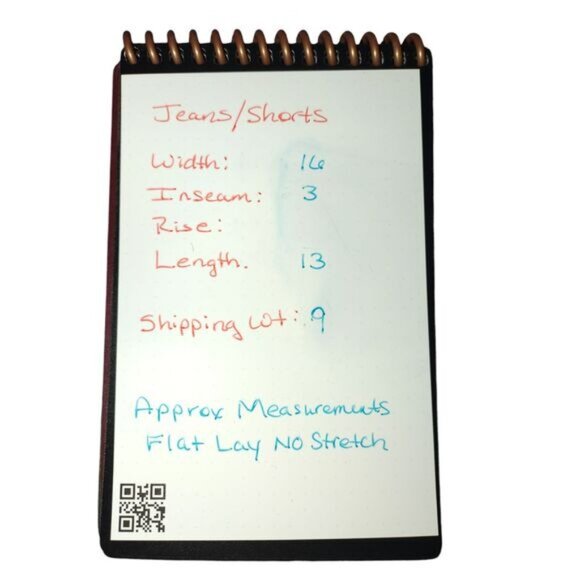 Jeans/Shorts
Width: 16
Inseam: 3
Rise:
Length. 13
Shipping Wt: 9
Approx Measurements
Flat Lay No Stretch